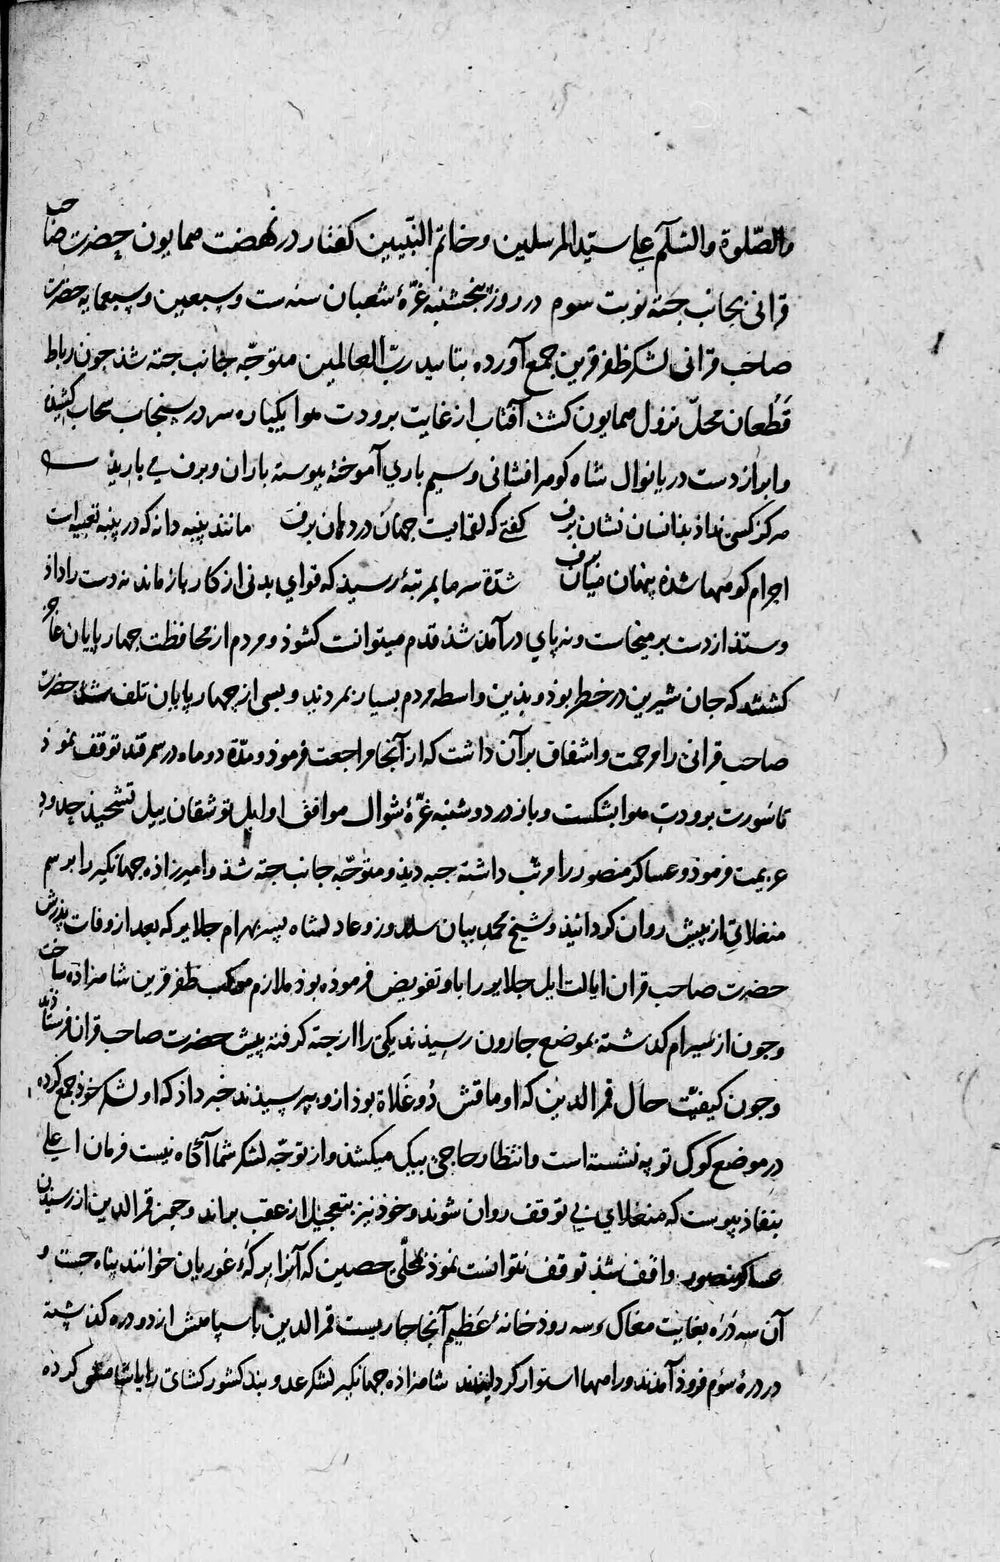 والصّلوة والسّلم علی سیّد المرسلین وخاتم النّبیین کفتار در نهضت همایون حضرت صاحب
قرانی بجانب جته نوبت سوم در روز پنجشنبه غرّهٔ شعبان سنه ست وسبعین وسبعمایه حضرت
صاحب قرانی لشکر ظفر قرین جمع آورده بتایید ربّ العالمین متوجّه جانب جته شد جون رباط
قَطَعان محلّ نزول همایون کشت آفتاب از غایت برودت هوا یکباره سر در سنجاب سحاب کشید
وابر از دست دریا نوال شاه کوهر افشانی وسیم باری آموخته پیوسته باران وبرف می بارید
هرکز کسی نداد بدانسان نشان برف کفتی که لقمه ایست جهان در دهان برف مانند پنبه دانه که در پنبه تعبیه است
اجرام کوهها شده پنهان میان برف شدّة سرما بمرتبهٔ رسید که قوای بدنی از کار باز ماند نه دست را داد
وستد از دست برمیخاست ونه پای درآمد شد قدم میتوانست کشود ومردم از محافظت جهار پایان عاجز
کشتند که جان شیرین در خطر بود وبدین واسطه مردم بسیار بمردند وبسی از جهار پایان تلف شد حضرت
صاحب قرانی را مرحمت واشفاق بر آن داشت که از آنجا مراجعت فرمود ومدّة دو ماه در سمرقند توقف نمود
تا سورت برودت هوا بشکست وباز در دوشنبه غرّهٔ شوال موافق اوایل توشقان ییل تشحیذ حدود
عزیمت فرمود وعساکر منصور را مرتب داشته جبه دید ومتوجّه جانب جته شد وامیرزاده جهانکیر را برسم
منغلای از پیش روان کردانید وشیخ محمد بیان سلدوز وعادلشاه پسر بهرام جلایر که بعد از وفات پدرش
حضرت صاحب قران ایالت ایل جلایر را باو تفویض فرموده بود ملازم موکب ظفر قرین شاهزاده ساخت
وجون از سیرام کذشته بموضع جارون رسیدند یکی را از جته کرفته پیش حضرت صاحب قران فرستادند
وجون کیفیّت حال قمر الدین که اوماقش دُوغَلاة بود ازو بپرسیدند خبر داد که او لشکر خود جمع کرده
در موضع کوک توپه نشسته است وانتظار حاجی بیک میکشد واز توجّه لشکر شما آکاه نیست فرمان اعلی
بنفاذ پیوست که منغلای بی توقف روان شوند وخود نیز بتعجیل از عقب براند وجون قمر الدین از رسیدن
عساکر منصور واقف شد توقف نتوانست نمود بمحلّی حصین که آنرا برکهٔ غوریان خوانند پناه جست و
آن سه دَره بغایت مغاک وسه رودخانهٔ عظیم آنجا جاریست قمر الدین با سپاهش از دو دره کذشته
در درهٔ سوم فرود آمدند وراهها استوار کردانیدند شاهزاده جهانکیر لشکر عدو بند کشور کشای را یاسامشی کرده